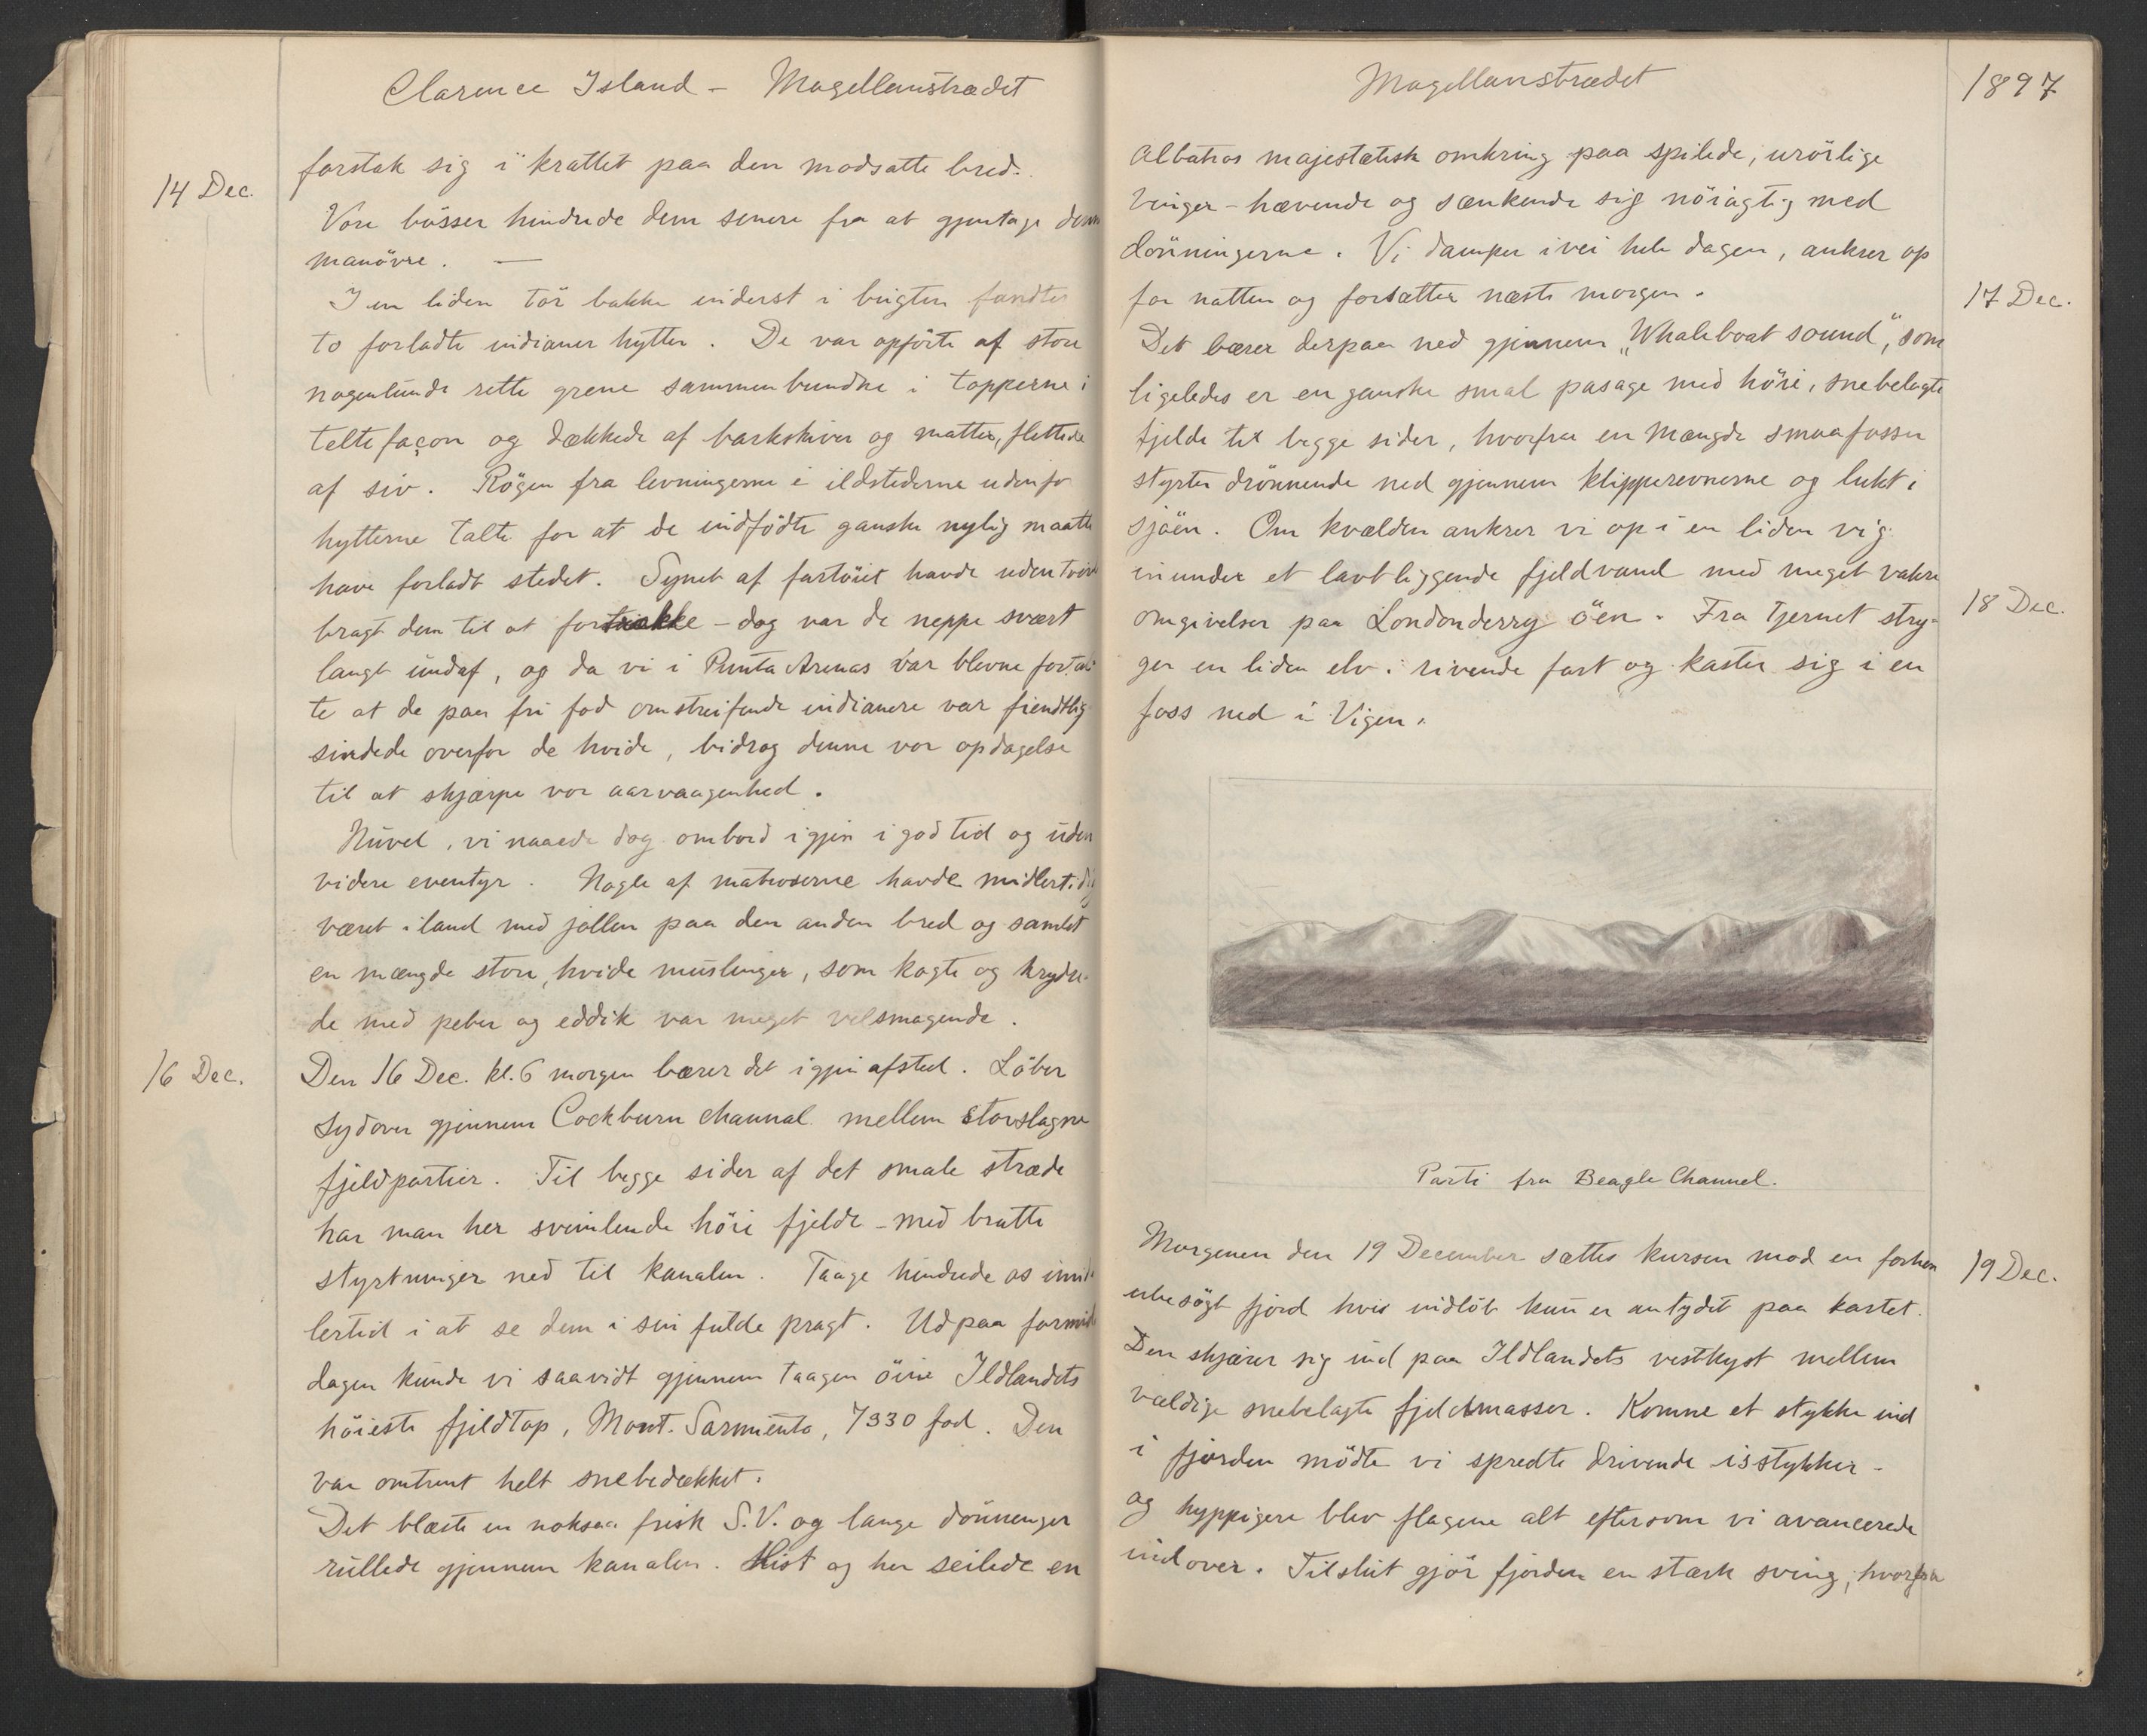 Clarence Island – Magellanstrædet
14 Dec.
forstak sig i krattet paa den modsatte bred.
Vore bösser hindrede dem senere fra at gjentage denne
manövre. —
I en liden tör bakke inderst i bugten fandtes
to forladte indianer hytter. De var opförte af store
nogenlunde rette grene sammenbundne i toppene i
telte façon og dækkede af barkskiver og matter, flettede
af siv. Rögen fra levningerne i ildstederne udenfor
hytterne talte for at de indfödte ganske nylig maatte
have forladt stedet. Synet af fartöiet havde uden tvivl
bragt dem til at fortrække – dog var de neppe svært
langt undaf, og da vi i Punta Arenas var blevne fortal-
te at de paa fri fod omstreifende indianere var fiendtlig
sindede overfor de hvide, bidrog denne vor opdagelse
til at skjærpe vor aarvaagenhed.
Nuvel, vi naaede dog ombord igjen i god tid og uden
videre eventyr. Nogle af matroserne havde midlertidig
været iland med jollen paa den anden bred og samlet
en mængde store, hvide muslinger, som kogte og krydre-
de med peber og eddik var meget velsmagende.
16 Dec.
Den 16 Dec. kl. 6 morgen bærer det igjen afsted. Löber
sydover gjennem Cockburn channal mellem storslagne
fjeldpartier. Til begge sider af det smale stræde
har man her svimlende höie fjelde – med bratte
styrtninger ned til kanalen. Taage hindrede os imid-
lertid i at se dem i sin fulde pragt. Udpaa formid-
dagen kunde vi saavidt gjennem taagen öine Ildlandets
höieste fjeldtop, Mont. Sarmiento, 7330 fod. Den
var omtrent helt snebedækket.
Det blæste en noksaa frisk S.V. og lange dönninger
rullede gjennem kanalen. Hist og her seilede en
Magellanstrædet
1897
Albatros majestætisk omkring paa spilede, urörlige
Vinger – hævende og sænkende sig nöiagtig med
dönningerne. Vi damper ivei hele dagen, ankrer op
for natten og forsætter næste morgen.
17 Dec.
Det bærer derpaa ned gjennem „Whaleboat sound", som
ligeledes er en ganske smal pasage med höie, snebelagte
fjelde til begge sider, hvorfra en mængde smaafosser
styrter drönnende ned gjennem klipperevnerne og lukt i
sjöen. Om kvælden ankrer vi op i en liden vig
inunder et lavtliggende fjeldvand med meget vakre
18 Dec.
omgivelser paa Londonderry öen. Fra tjernet stry-
ger en liden elv i rivende fart og kaster sig i en
foss ned i Vigen.
Parti fra Beagle Channel.
Morgenen den 19 December sættes kursen mod en forhen
19 Dec.
ubesögt fjord hvis indlöb kun er antydet paa kartet.
Den skjærer sig ind paa Ildlandets vestkyst mellem
vældige snebelagte fjeldmasser. Komne et stykke ind
i fjorden mödte vi spredte drivende isstykker –
og hyppigere blev flagene alt eftersom vi avancerede
indover. Tilslut gjör fjorden en stærk sving, hvorfra